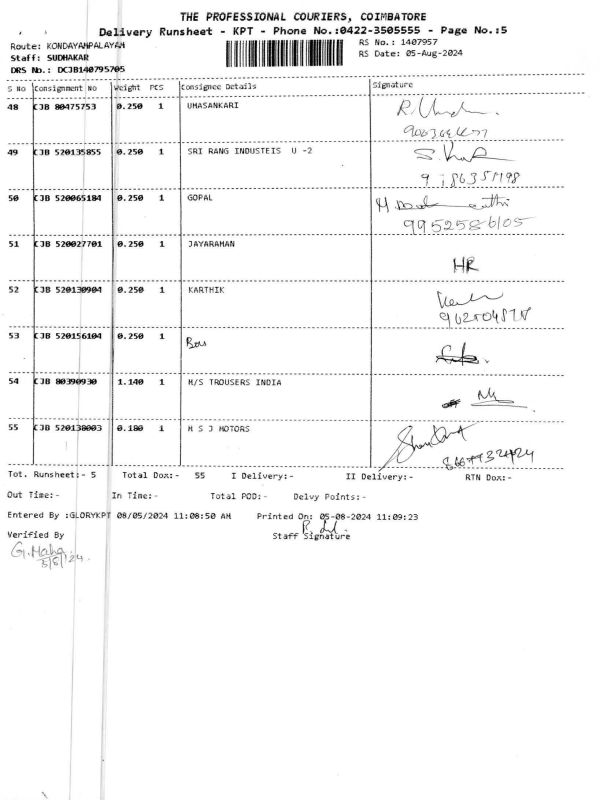 THE PROFESSIONAL COURIERS, COIMBATORE
Delivery Runsheet - KPT - Phone No.:0422-3505555 - Page No.:5
Route: KONDAYAMPALAYAM
RS No.: 1407957
Staff: SUDHAKAR
RS Date: 05-Aug-2024
DRS No.: DCJB140795705
S No Consignment No Weight PCS Consignee Details Signature
48 CJB 80475753 0.250 1 UMASANKARI
49 CJB 520135855 0.250 1 SRI RANG INDUSTEIS U -2
50 CJB 520065184 0.250 1 GOPAL
9952586105
51 CJB 520027701 0.250 1 JAYARAMAN
HR
52 CJB 520130904 0.250 1 KARTHIK
53 CJB 520156104 0.250 1
54 CJB 80390930 1.140 1 M/S TROUSERS INDIA
55 CJB 520138003 0.180 1 M S J MOTORS
Tot. Runsheet:- 5 Total Dox:- 55 I Delivery:- II Delivery:- RTN Dox:-
Out Time:- In Time:- Total POD:- Delvy Points:-
Entered By :GLORYKPT 08/05/2024 11:08:50 AM Printed On: 05-08-2024 11:09:23
Verified By Staff Signature
G. Maha
5/8/24.